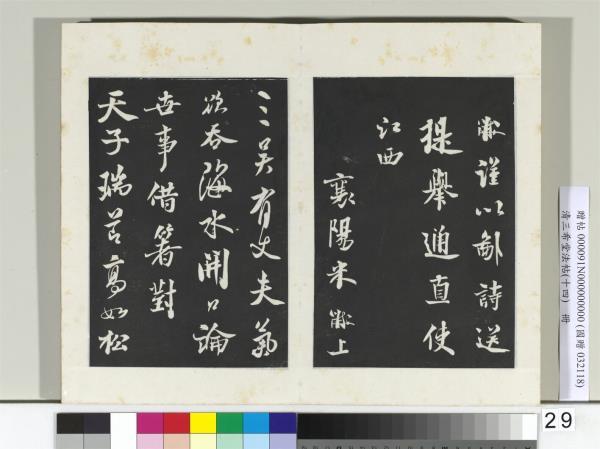 黻謹以鄙詩送
提舉通直使
江西
襄陽米黻上
三吳有丈夫氣
欲吞海水開口論
世事借箸對
天子瑞節高如松
贈帖 000091N000000000 (國贈 032118)
清三希堂法帖(十四) 冊
29